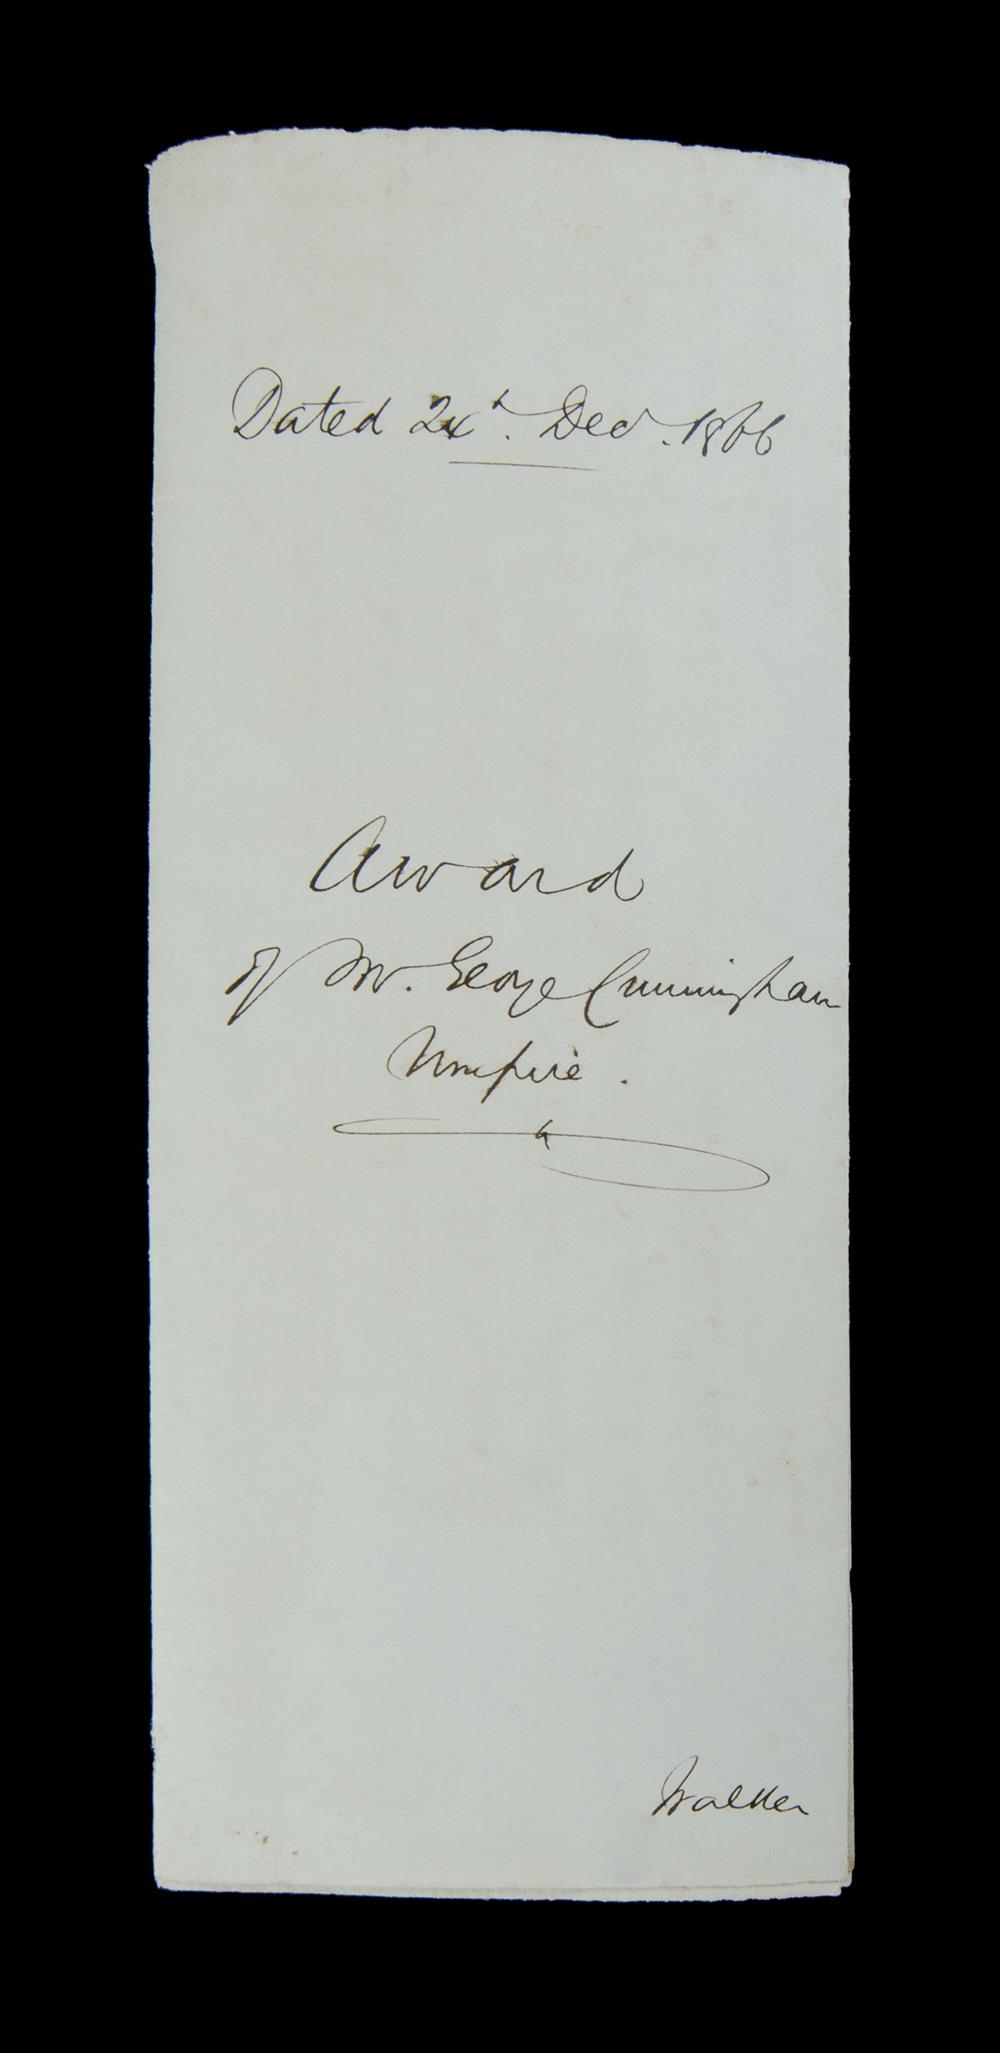 Dated 24th. Decr. 1866
Award
of Mr. George Cunningham
Umpire.
Walker